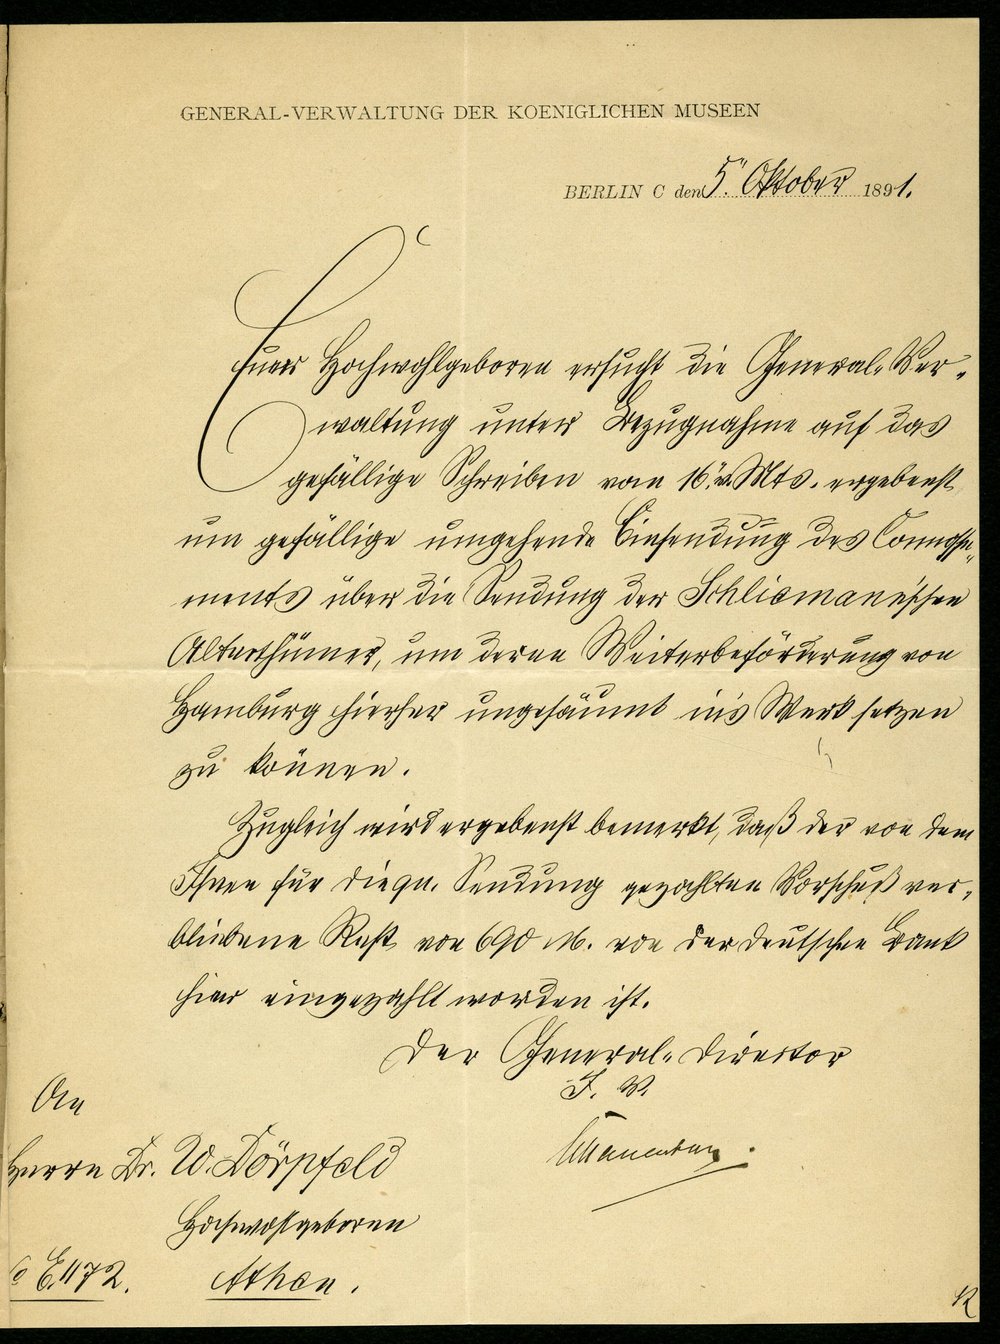 GENERAL-VERWALTUNG DER KOENIGLICHEN MUSEEN
BERLIN C den 5. Oktober 1891.
Euer Hochwohlgeboren ersucht die General-Ver-
waltung unter Bezugnahme auf das
gefällige Schreiben vom 16. v. Mts. ergebenst
um gefällige umgehende Einsendung des Connosse-
ments über die Sendung der Schliemann'schen
Alterthümer, um deren Weiterbeförderung von
Hamburg hierher ungesäumt in's Werk setzen
zu können.
Zugleich wird ergebenst bemerkt, daß der von dem
Ihnen für die qu. Sendung gezahlten Vorschuß ver-
bliebene Rest von 690 M. von der deutschen Bank
hier eingezahlt worden ist.
Der General-Director
I. V.
An
Herrn Dr. W. Dörpfeld
Hochwohlgeboren
Athen.
E. 1172.